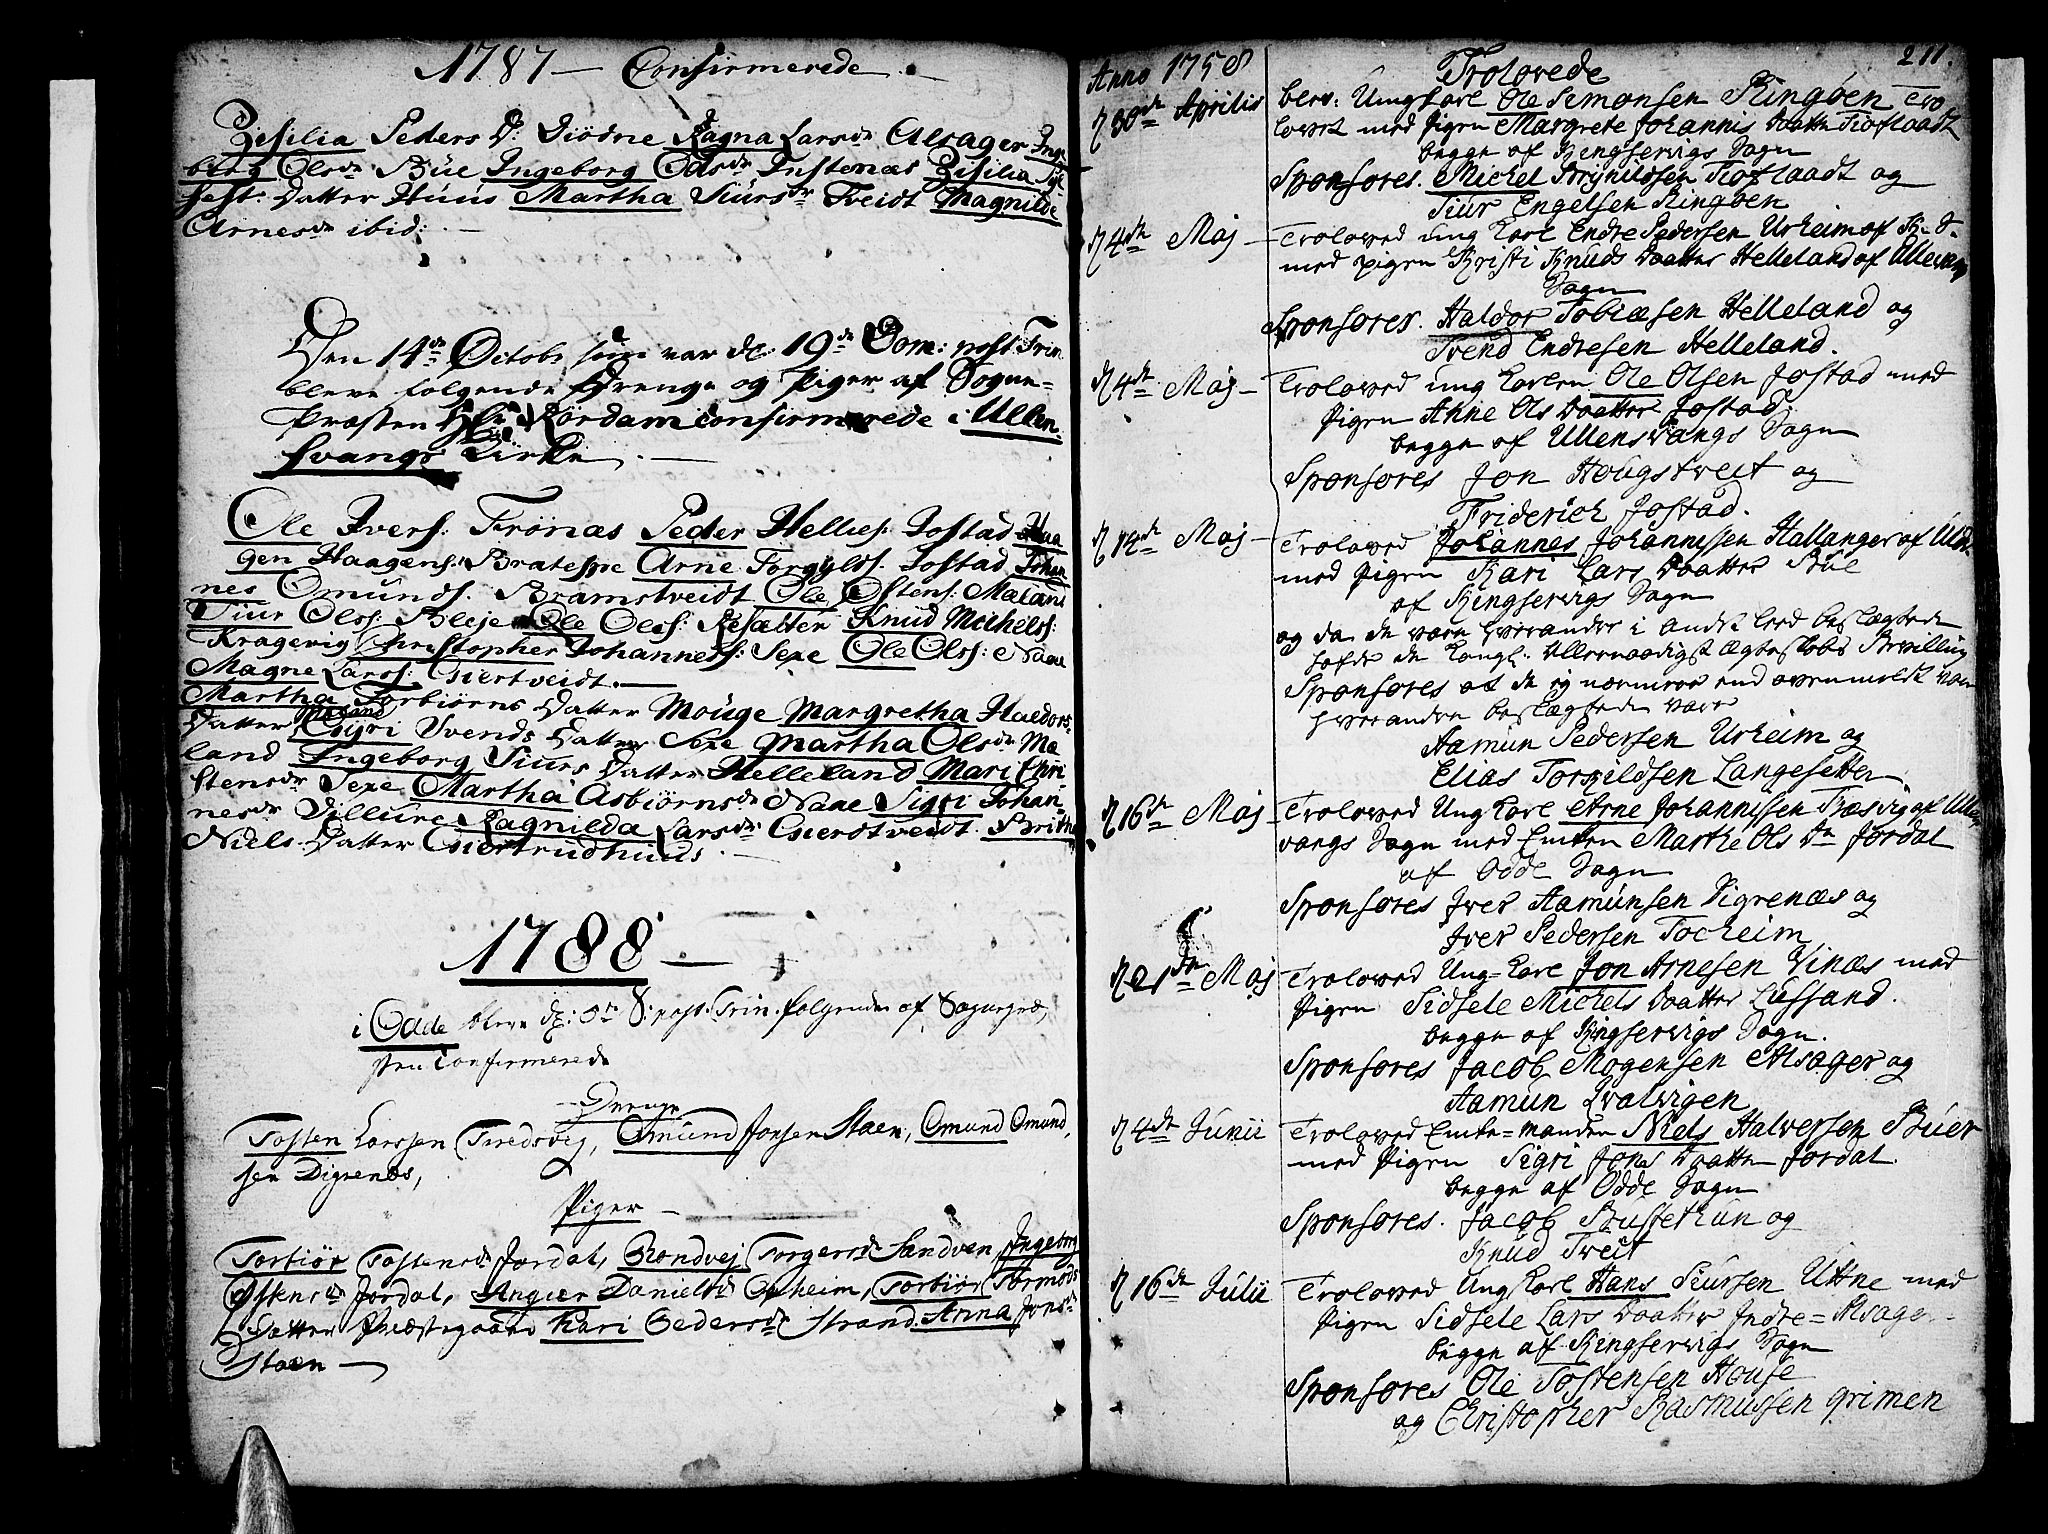 1787 — Confirmerede
Zesilia Peders D: Diødne Ragna Larsdr Alsager Inge-
berg Olsdr Büe Ingeborg Odsdr Instenæs Zesilia
Datter Huus Martha Siursdr Tveidt Magnilde
Arnesdr ibid:
Den 14de Octobr som var de 19de Dom: post Trin
bleve følgende Drenge og Piger af Sogne-
Præsten Hr Rørdam confirmerede i Ullen-
svangs Kirke
Ole Ivers: Frønæs Peder Helliesf: Jostad Haa
gen Haagens: Bratespe Arne Torgylds. Jostad Johan
nes Omunds. Bramstveidt Ole Østens: Mæland
Siur Olss: Bleje Ole Olss: Resætter Knud Michels:
Kragevig Christopher Johanness: Sexe Ole Olss: Naae
Magne Larss: Giertveidt.
Martha Torbiørns Datter Mouge Margretha Haldors
Datter Mæland Gyri Svends Datter Sexe Martha Olsdr Mæ
land Ingeborg Siurs Datter Helleland Mari Chri
stensdr Sexe Martha Asbiørnsdr Naae Sigri Johan-
nesdr Dillure Ragnilda Larsdr Gierdtveidt. Britha
Niels Datter Giertrudhuus.
1788 —
i Odde bleve d: 3de S: post. Trin. følgende af Sognepræ-
sten Confirmerede
Drenge
Tosten Larssen Tredsvig, Omund Jonsen Staen, Omund Omund-
sen Digrenæs,
Piger
Torbiør Tostensdr Jordal, Rondvej Torgersdr Sandven, Ingeborg
Østensdr Jordal, Angier Danielsdr Opheim, Torbiør Tormods
Datter Præstegaard Kari Pedersdr Strand Anna Jonsdr
Staen —
211.
Anno 1758 Trolovede
d 30de Aprilis blev: Ungkarl Ole Simonsen Ringøen Tro
lovet med Pigen Margrete Johannis Daatter Tioflaadt
begge af Kingservigs Sogn
Sponsores. Michel Brynildsen Tioflaadt og
Siur Engelsen Ringøen
d 4de Maj — Troloved ung karl Endre Pedersen Urheim af K. S.
med pigen Kristi Knuds Daatter Helleland af Ullensvang
Sogn
Sponsores. Haldor Tobiæsen Helleland og
Svend Endresen Helleland.
d 4de Maj — Troloved ung karlen Ole Olsen Jostad med
Pigen Anne Ols Daatter Jostad.
begge af Ullensvangs Sogn
Sponsores Jon Hougstveit og
Friderich Jostad.
d 14de Maj — Troloved Johannes Johannissen Hallanger af Ulvi
med Pigen Kari Lars Daatter Büe
af Kingservigs Sogn
og da de vare hverandre i andet leed beslægtede
hafde de Kongl: Allernaadigst Ægteskabs Bevilling
Sponsores at de ej nærmere end ovenmeldt vare
hverandre beslægtede vare
Aamun Pedersen Urheim og
Elias Torkildsen Langesetter
d 16de Maj — Troloved Ung karl Arne Johannissen Træsvig af Ullens
vangs Sogn med Enken Marthe Ols Dr Jordal
af Odde Sogn
Sponsores Iver Aamunsen Digrenæs og
Iver Pedersen Tocheim
d 21de Maj Troloved Ung-karl Jon Arnesen Vinæs med
Pigen Sidsele Michels Daatter Lussand.
begge af Kingservigs Sogn.
Sponsores Jacob Mogensen Alsager og
Aamun Qvalvigen
d 4de Junii Troloved Enke-manden Niels Halversen Büer
med Pigen Sigri Jons Daatter Jordal.
begge af Odde Sogn
Sponsores. Jacob Bustethun og
Knud Tveit
d 16de Julii Troloved Ung Karl Hans Siursen Uttne med
Pigen Sidsele Lars Daatter Indre=Alsager.
begge af Kingservigs Sogn
Sponsores Ole Tostensen House
og Christopher Rasmussen grimen